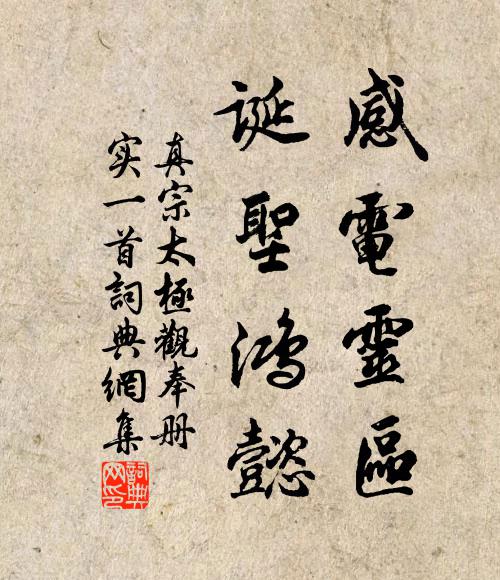 感電靈區
誕聖鴻懿
真宗太極觀奉册
实一首詞典網集
詞典
网印